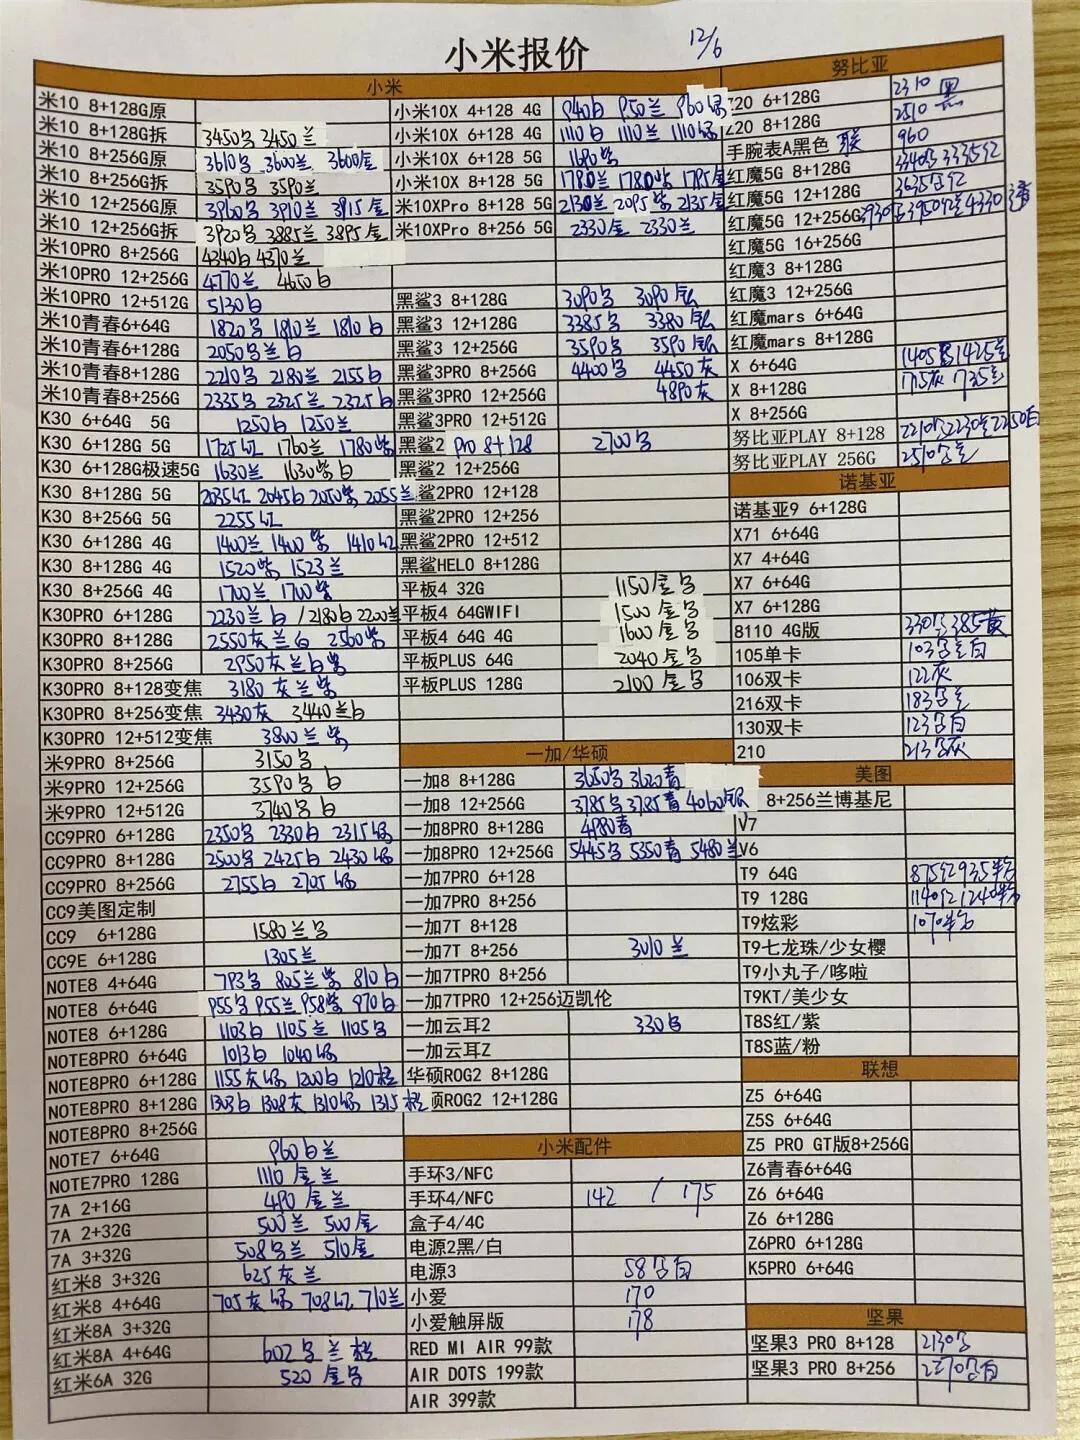 小米报价 12/6
小米
米10 8+128G原
米10 8+128G拆 3450 3450兰
米10 8+256G原 3610 3600兰 3600金
米10 8+256G拆 3590 3590兰
米10 12+256G原 3960 3910兰 3915金
米10 12+256G拆 3920 3885兰 3895金
米10PRO 8+256G 4340白 4370兰
米10PRO 12+256G 4770兰 4650白
米10PRO 12+512G 5130白
米10青春6+64G 1820 1810兰 1810白
米10青春6+128G 2050 兰白
米10青春8+128G 2210 2180兰 2155白
米10青春8+256G 2335 2325兰 2325白
K30 6+64G 5G 1250白 1250兰
K30 6+128G 5G 1725红 1760兰 1780紫
K30 6+128G极速5G 1630兰 1630紫白
K30 8+128G 5G 2035红 2045白 2050紫 2055兰
K30 8+256G 5G 2255红
K30 6+128G 4G 1400兰 1400紫 1410红
K30 8+128G 4G 1520紫 1523兰
K30 8+256G 4G 1700兰 1700紫
K30PRO 6+128G 2230兰白 /2180白 2200兰
K30PRO 8+128G 2550灰兰白 2560紫
K30PRO 8+256G 2950灰兰白紫
K30PRO 8+128变焦 3180灰兰紫
K30PRO 8+256变焦 3430灰 3440兰白
K30PRO 12+512变焦 3800兰紫
米9PRO 8+256G 3150
米9PRO 12+256G 3590 白
米9PRO 12+512G 3740 白
CC9PRO 6+128G 2350 2330白 2315绿
CC9PRO 8+128G 2500 2425白 2430绿
CC9PRO 8+256G 2755白 2705绿
CC9美图定制
CC9 6+128G 1580兰
CC9E 6+128G 1305兰
NOTE8 4+64G 793 805兰紫 810白
NOTE8 6+64G 955 955兰 958紫 970白
NOTE8 6+128G 1103白 1105兰 1105
NOTE8PRO 6+64G 1013白 1040绿
NOTE8PRO 6+128G 1155灰绿 1200白 1210橙
NOTE8PRO 8+128G 1303白 1308灰 1310绿 1315橙
NOTE8PRO 8+256G
NOTE7 6+64G 960白兰
NOTE7PRO 128G 1110金兰
7A 2+16G 490金兰
7A 2+32G 500兰 500金
7A 3+32G 508兰 510金
红米8 3+32G 625灰兰
红米8 4+64G 705灰绿 708红 710兰
红米8A 3+32G
红米8A 4+64G 602 兰橙
红米6A 32G 520金
小米10X 4+128 4G 940白 950兰 960绿
小米10X 6+128 4G 1110白 1110兰 1110绿
小米10X 6+128 5G 1690紫
小米10X 8+128 5G 1780兰 1780紫 1785金
米10XPro 8+128 5G 2130兰 2095紫 2135金
米10XPro 8+256 5G 2330金 2330兰
黑鲨3 8+128G 3090 3090银
黑鲨3 12+128G 3385 3380银
黑鲨3 12+256G 3590 3590银
黑鲨3PRO 8+256G 4400 4450灰
黑鲨3PRO 12+256G 4890灰
黑鲨3PRO 12+512G
黑鲨2 Pro 8+128 2700
黑鲨2 12+256G
鲨2PRO 12+128
黑鲨2PRO 12+256
黑鲨2PRO 12+512
黑鲨HELO 8+128G
平板4 32G 1150金
平板4 64GWIFI 1500金
平板4 64G 4G 1600金
平板PLUS 64G 2040金
平板PLUS 128G 2100金
一加/华硕
一加8 8+128G 3650 3620青
一加8 12+256G 3785 3785青 4060银
一加8PRO 8+128G 4980青
一加8PRO 12+256G 5445 5350青 5480兰
一加7PRO 6+128
一加7PRO 8+256
一加7T 8+128
一加7T 8+256 3010兰
一加7TPRO 8+256
一加7TPRO 12+256迈凯伦
一加云耳2 330
一加云耳Z
华硕ROG2 8+128G
硕ROG2 12+128G
小米配件
手环3/NFC
手环4/NFC 142 / 175
盒子4/4C
电源2黑/白
电源3 58白
小爱 170
小爱触屏版 178
RED MI AIR 99款
AIR DOTS 199款
AIR 399款
努比亚
Z20 6+128G 2310 黑
Z20 8+128G 2510 黑
手腕表A黑色 联 960
红魔5G 8+128G 3340 3335红
红魔5G 12+128G 3635红
红魔5G 12+256G 3930 3950红 4330透
红魔5G 16+256G
红魔3 8+128G
红魔3 12+256G
红魔mars 6+64G
红魔mars 8+128G
X 6+64G 1405 1425兰
X 8+128G 1715灰 1735兰
X 8+256G
努比亚PLAY 8+128 2210 2230兰 2250白
努比亚PLAY 256G 2510兰
诺基亚
诺基亚9 6+128G
X71 6+64G
X7 4+64G
X7 6+64G
X7 6+128G
8110 4G版 330 385黄
105单卡 103兰白
106双卡 122灰
216双卡 183兰
130双卡 123白
210 213灰
美图
8+256兰博基尼
V7
V6
T9 64G 875红 935
T9 128G 1140红 1240
T9炫彩 1070
T9七龙珠/少女樱
T9小丸子/哆啦
T9KT/美少女
T8S红/紫
T8S蓝/粉
联想
Z5 6+64G
Z5S 6+64G
Z5 PRO GT版8+256G
Z6青春6+64G
Z6 6+64G
Z6 6+128G
Z6PRO 6+128G
K5PRO 6+64G
坚果
坚果3 PRO 8+128 2130
坚果3 PRO 8+256